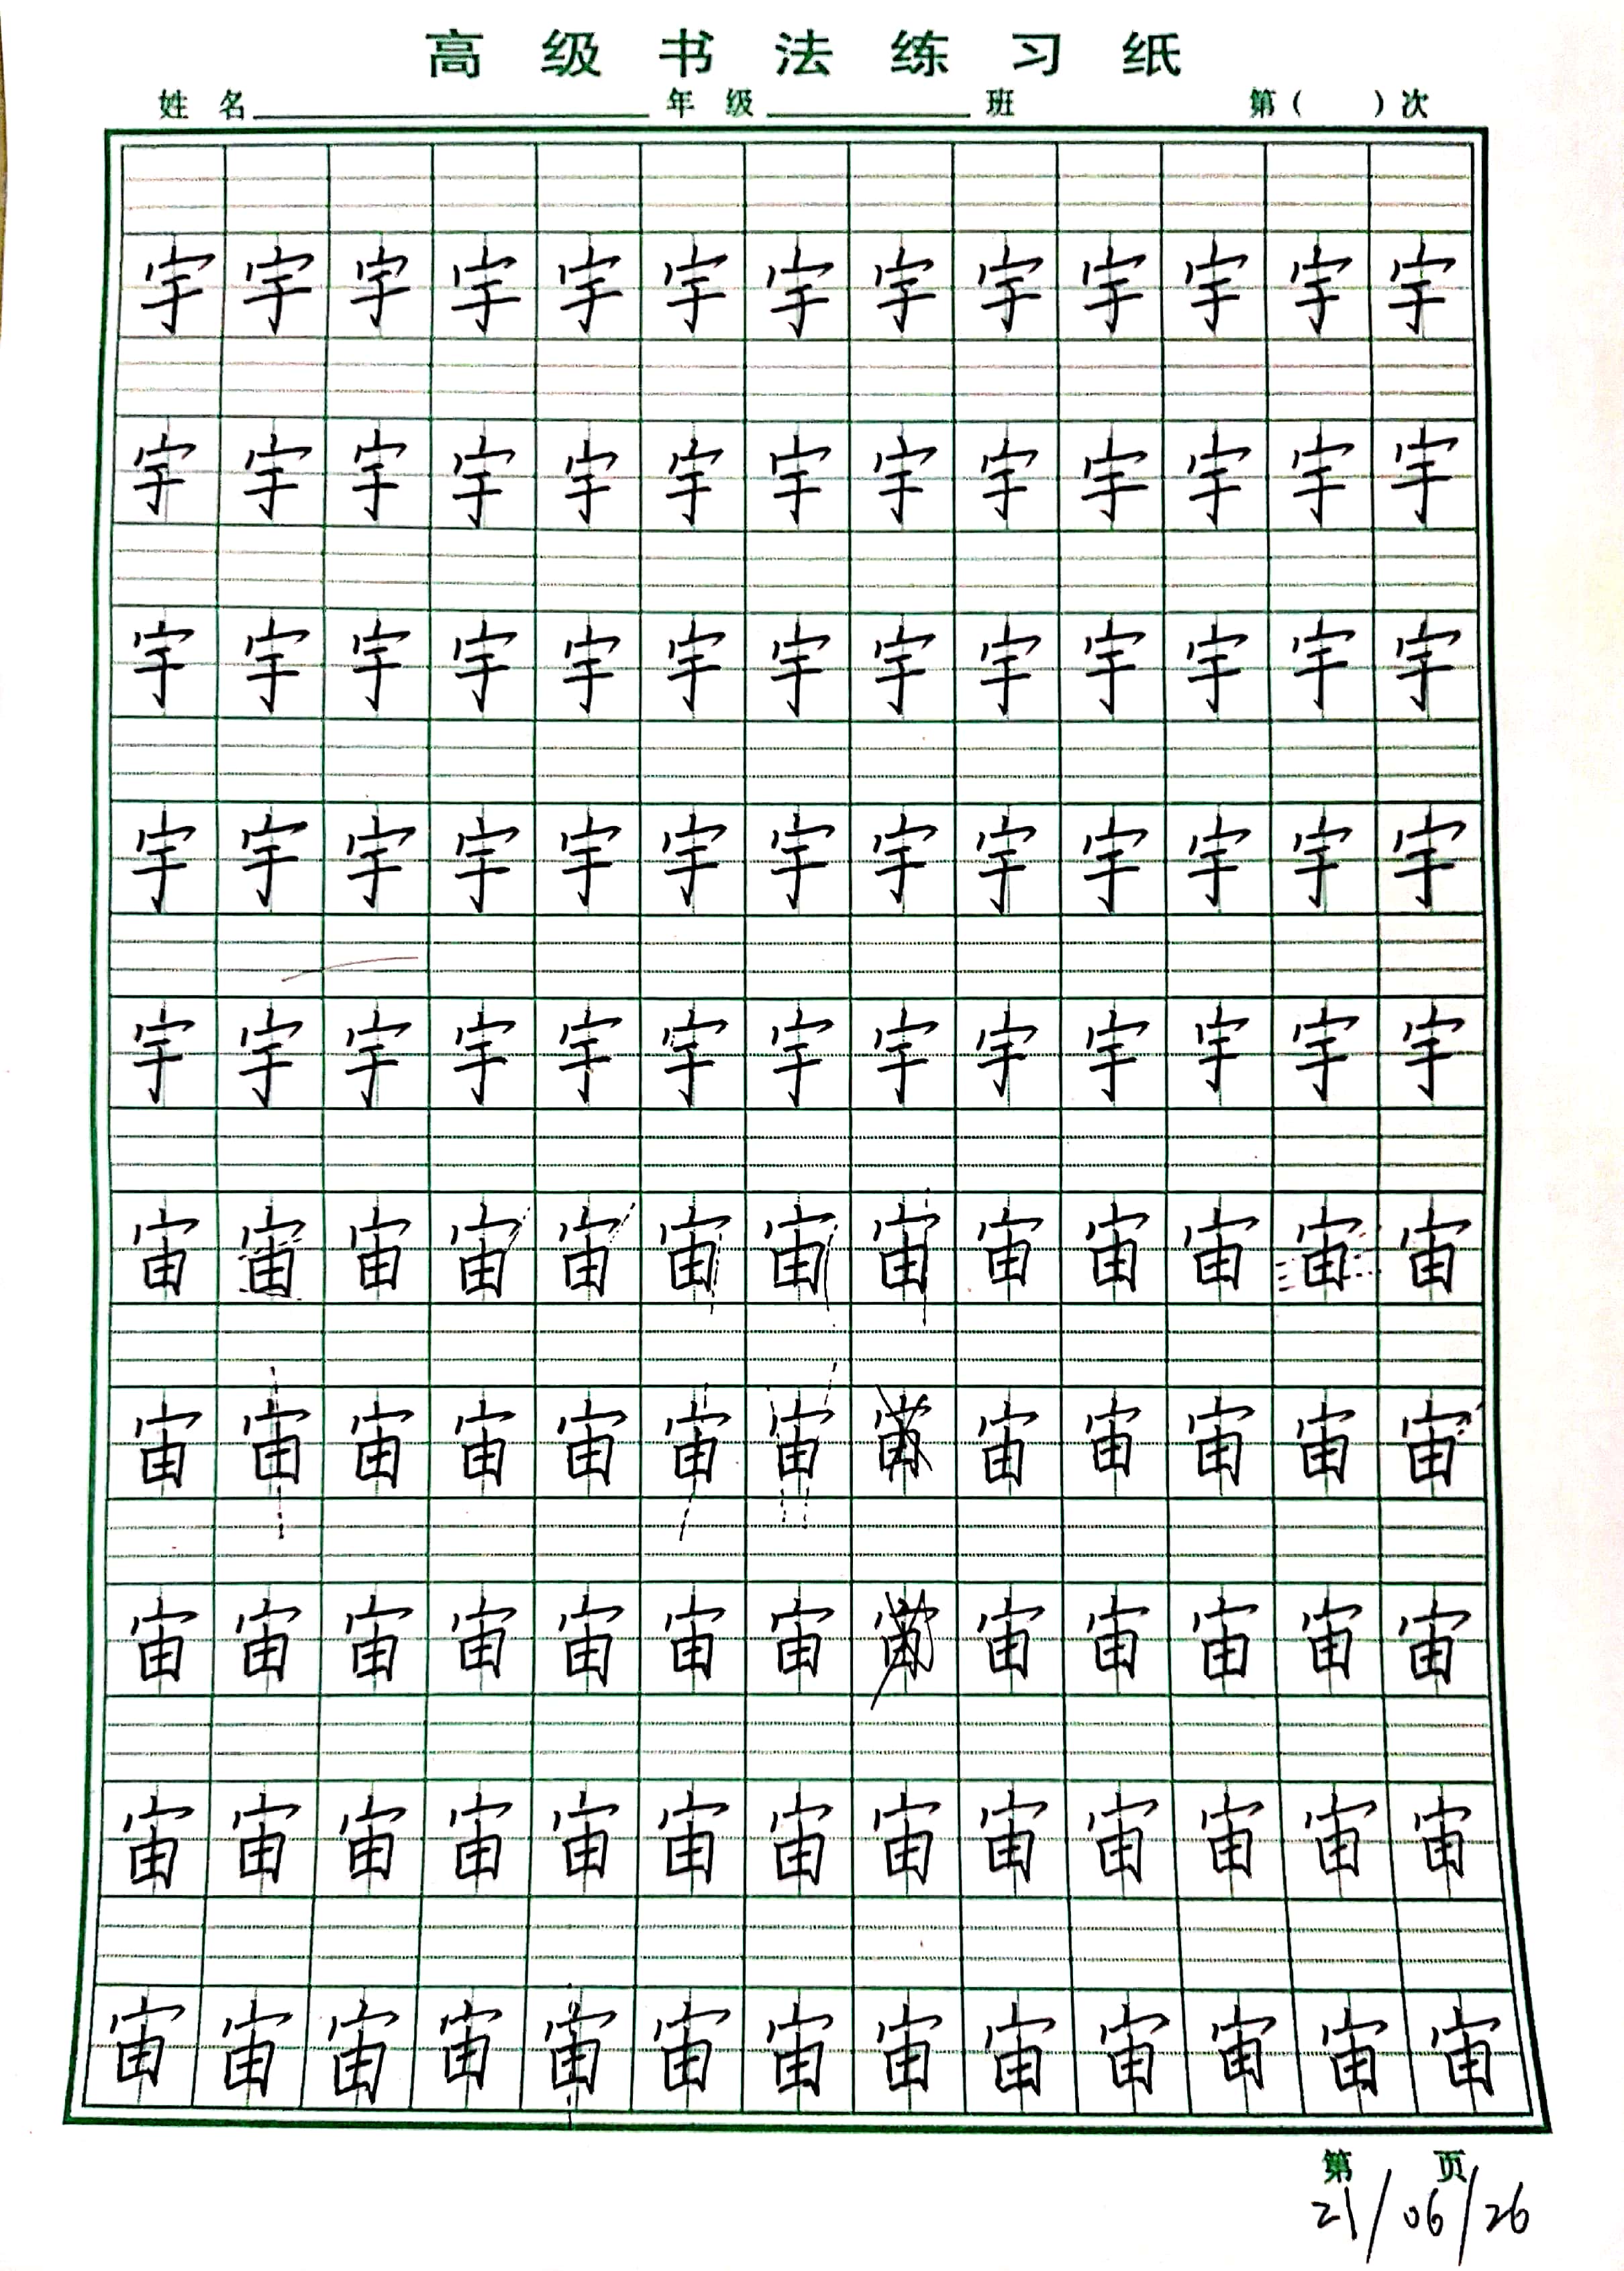 高级书法练习纸
姓名 年级 班 第( )次
宇宇宇宇宇宇宇宇宇宇宇宇宇
宇宇宇宇宇宇宇宇宇宇宇宇宇
宇宇宇宇宇宇宇宇宇宇宇宇宇
宇宇宇宇宇宇宇宇宇宇宇宇宇
宇宇宇宇宇宇宇宇宇宇宇宇宇
宙宙宙宙宙宙宙宙宙宙宙宙宙
宙宙宙宙宙宙宙宙宙宙宙宙宙
宙宙宙宙宙宙宙宙宙宙宙宙宙
宙宙宙宙宙宙宙宙宙宙宙宙宙
宙宙宙宙宙宙宙宙宙宙宙宙宙
第 页
21/06/26